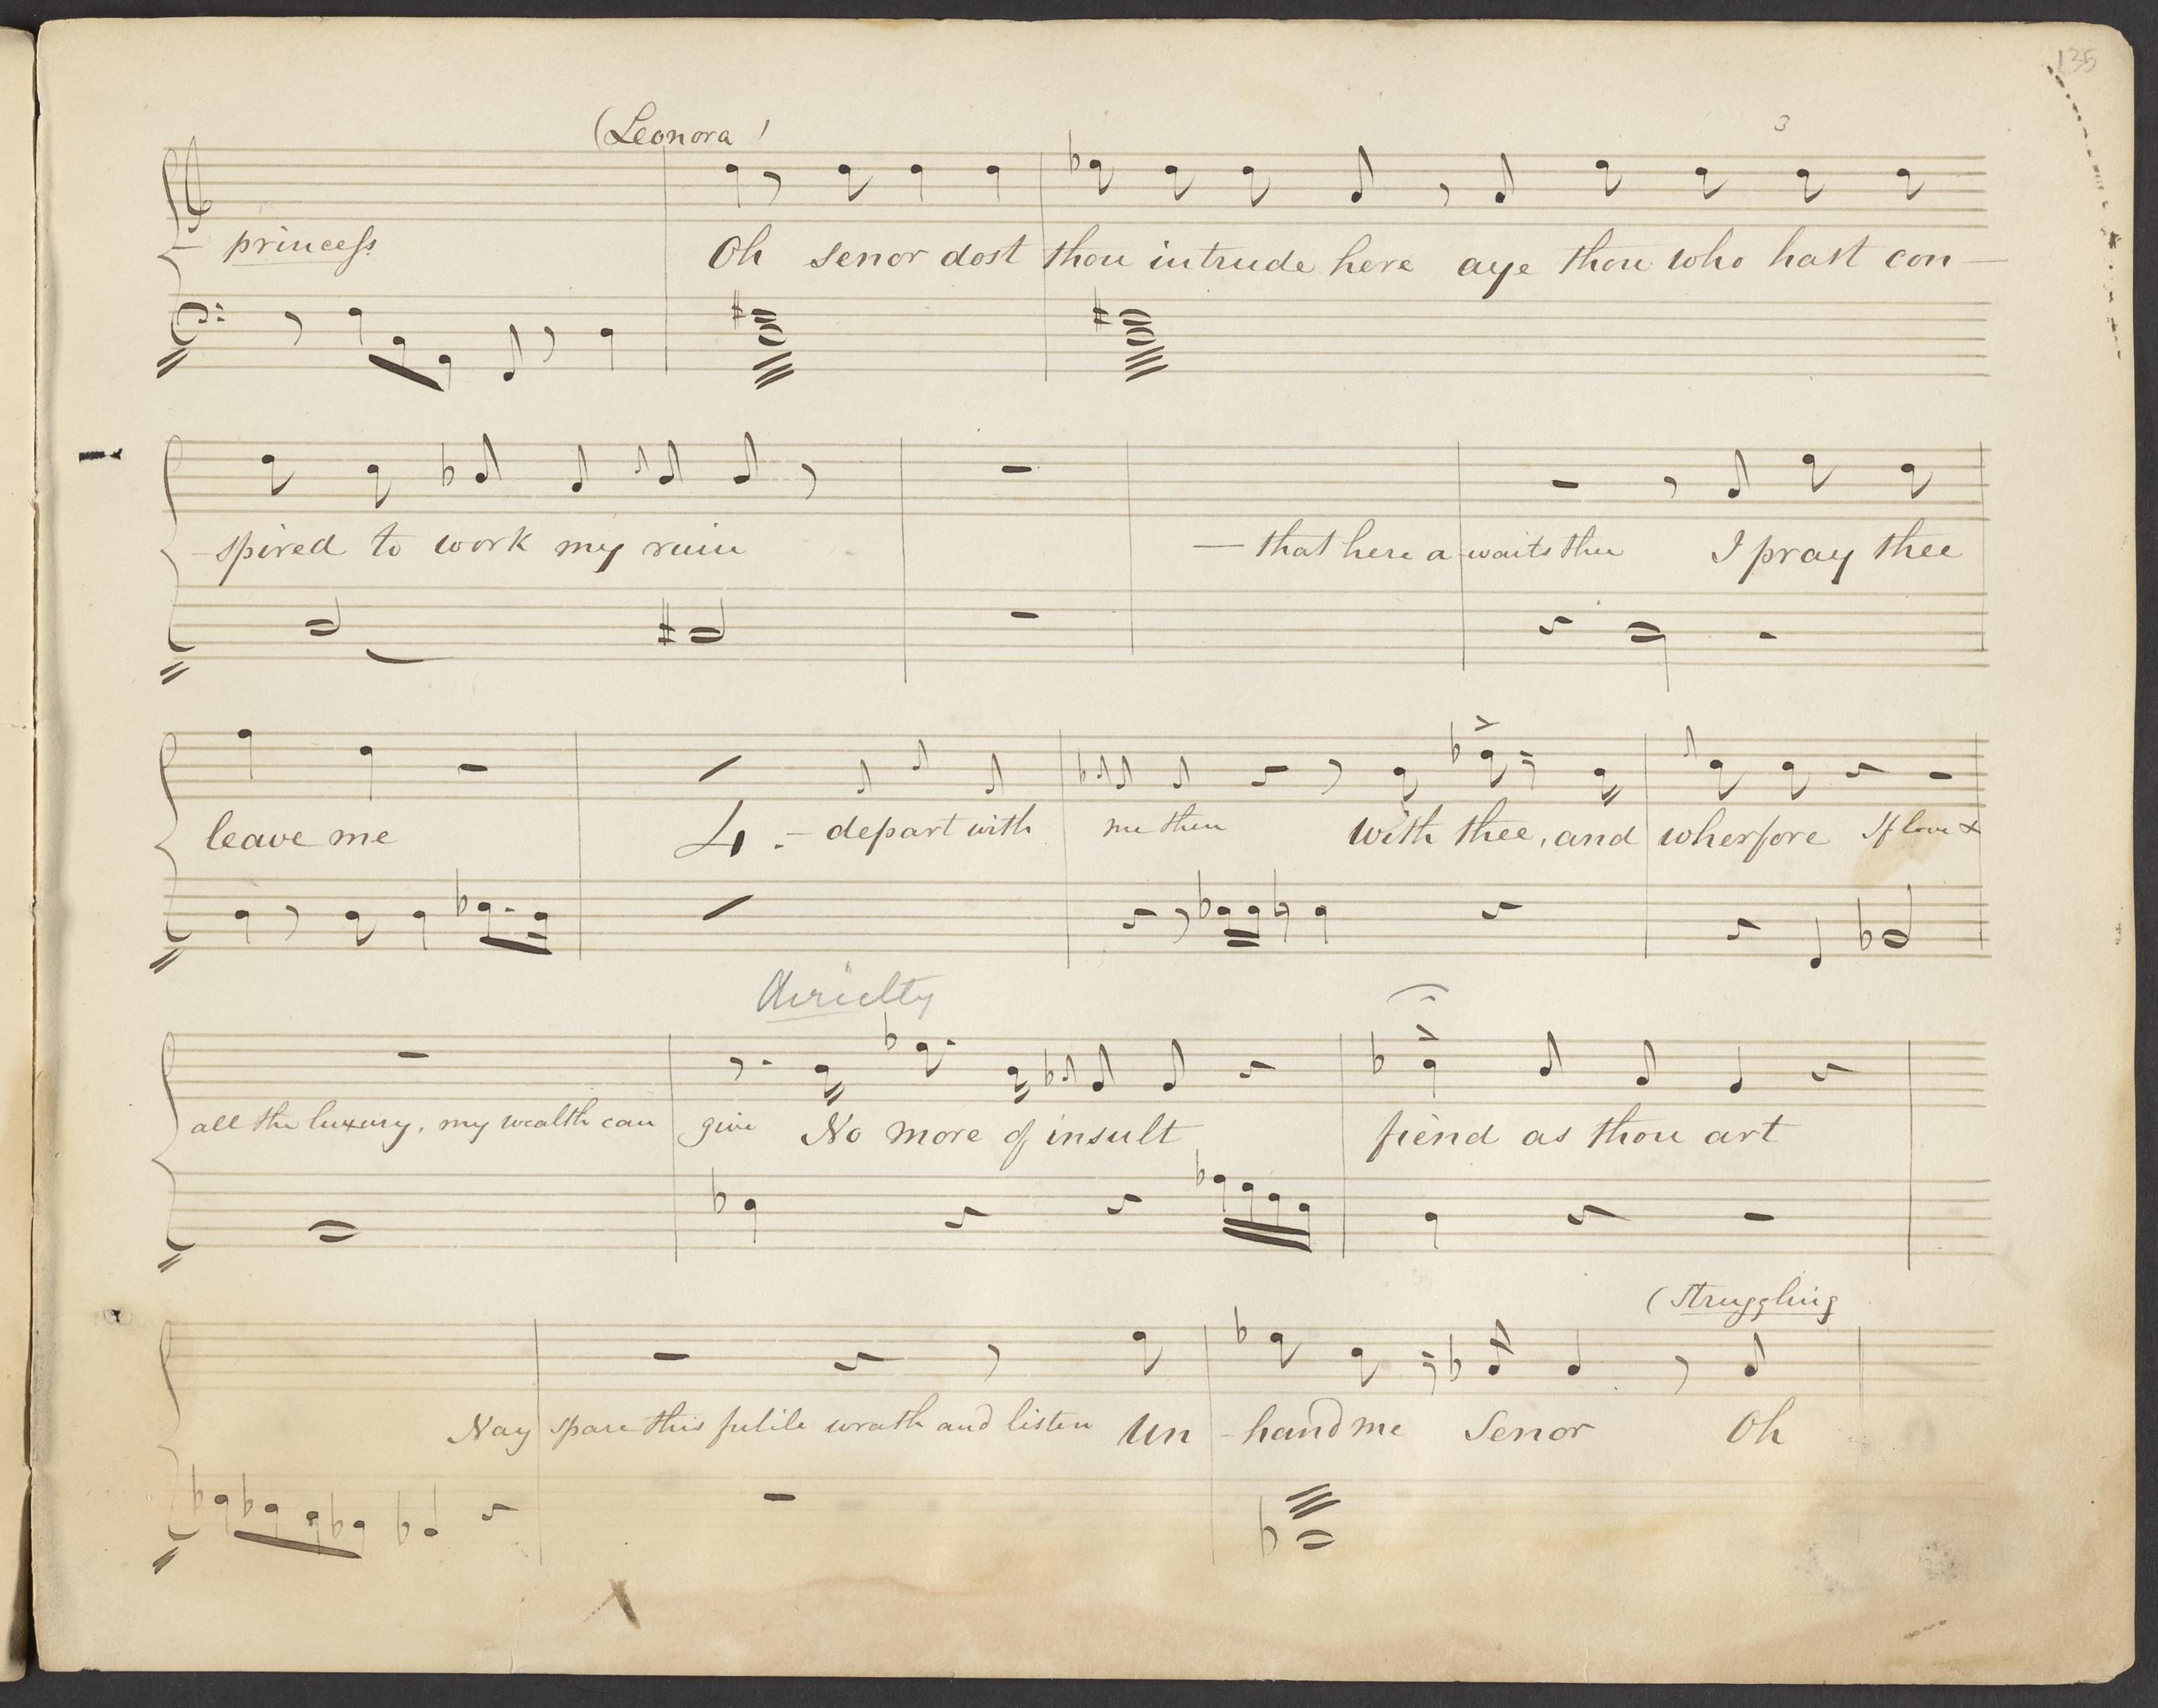 135
(Leonora)
3
– princess Oh Senor dost thou intrude here aye thou who hast con –
– spired to work my ruin — that here a – waits thee I pray thee
leave me 4 . – depart with me then with thee, and wherfore If love &
all the luxury, my wealth can give No more of insult fiend as thou art
(Struggling
Nay spare this futile wrath and listen Un – hand me Senor Oh